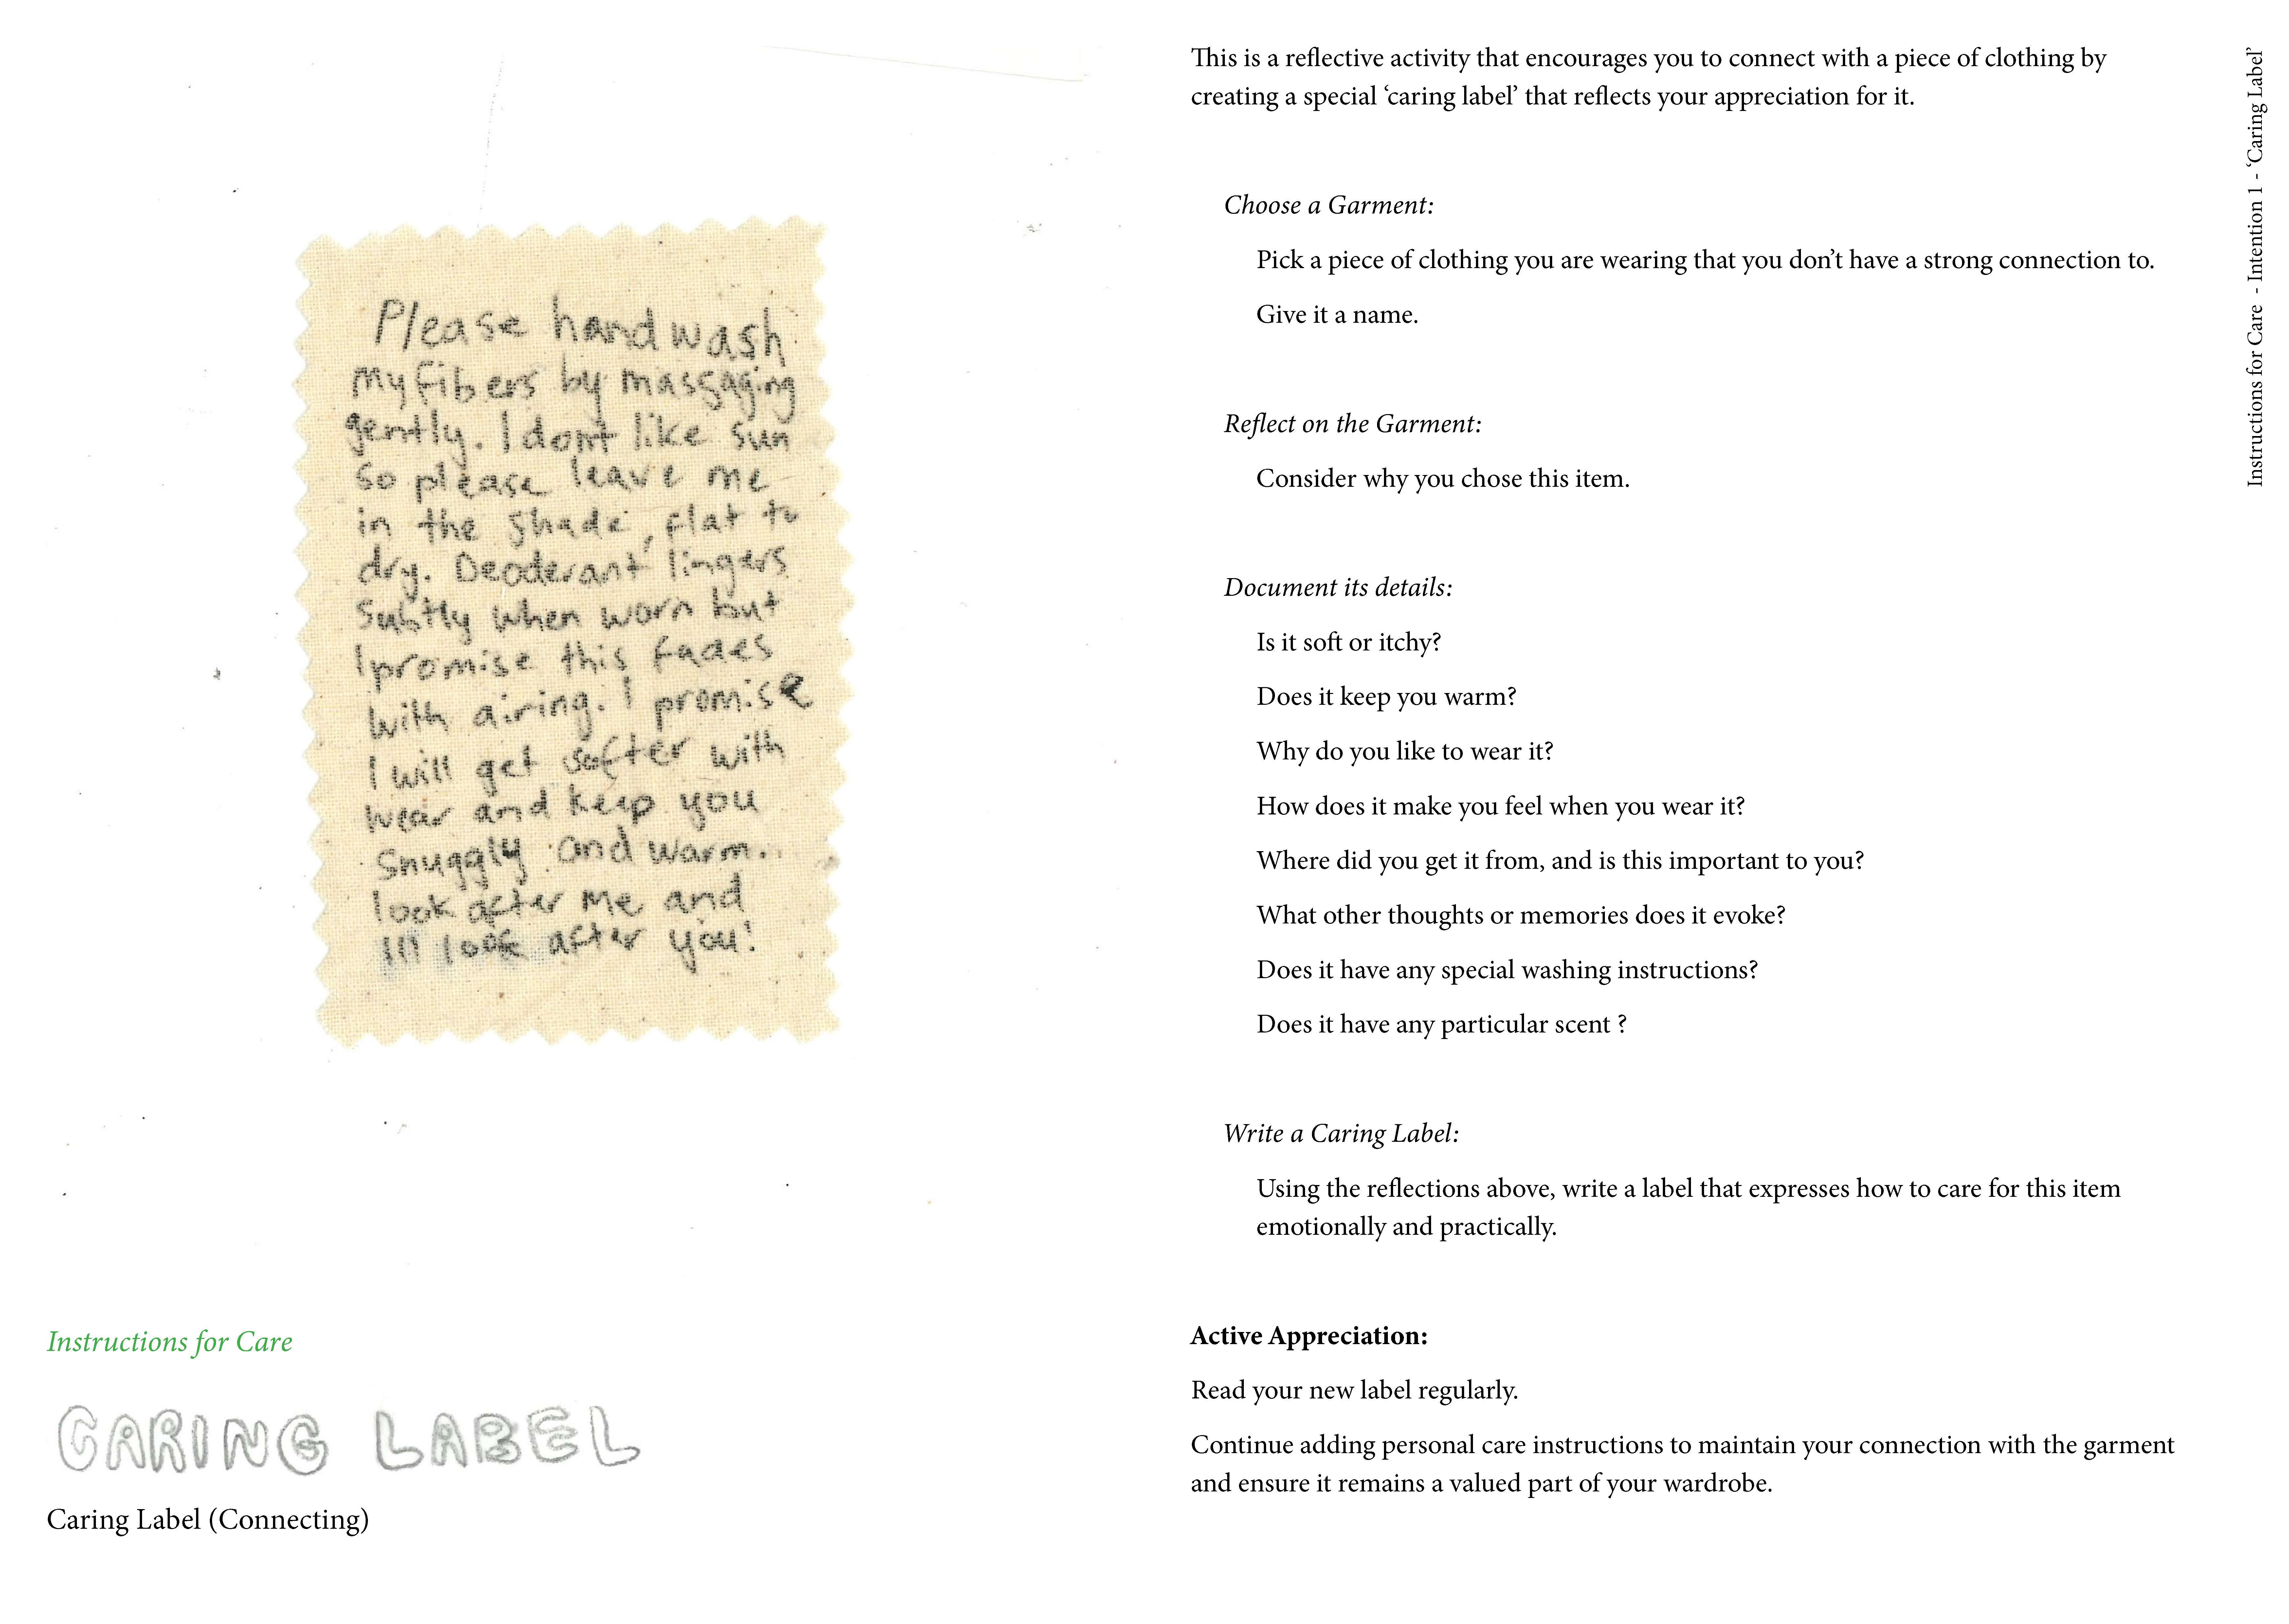 Please hand wash
my fibers by massaging
gently. I dont like sun
so please leave me
in the shade, flat to
dry. Deoderant lingers
subtly when worn but
I promise this fades
with airing. I promise
I will get softer with
wear and keep you
snuggly and warm.
look after me and
Ill look after you!
Instructions for Care
CARING LABEL
Caring Label (Connecting)
This is a reflective activity that encourages you to connect with a piece of clothing by
creating a special ‘caring label’ that reflects your appreciation for it.
Choose a Garment:
Pick a piece of clothing you are wearing that you don’t have a strong connection to.
Give it a name.
Reflect on the Garment:
Consider why you chose this item.
Document its details:
Is it soft or itchy?
Does it keep you warm?
Why do you like to wear it?
How does it make you feel when you wear it?
Where did you get it from, and is this important to you?
What other thoughts or memories does it evoke?
Does it have any special washing instructions?
Does it have any particular scent ?
Write a Caring Label:
Using the reflections above, write a label that expresses how to care for this item
emotionally and practically.
Active Appreciation:
Read your new label regularly.
Continue adding personal care instructions to maintain your connection with the garment
and ensure it remains a valued part of your wardrobe.
Instructions for Care - Intention 1 - ‘Caring Label’